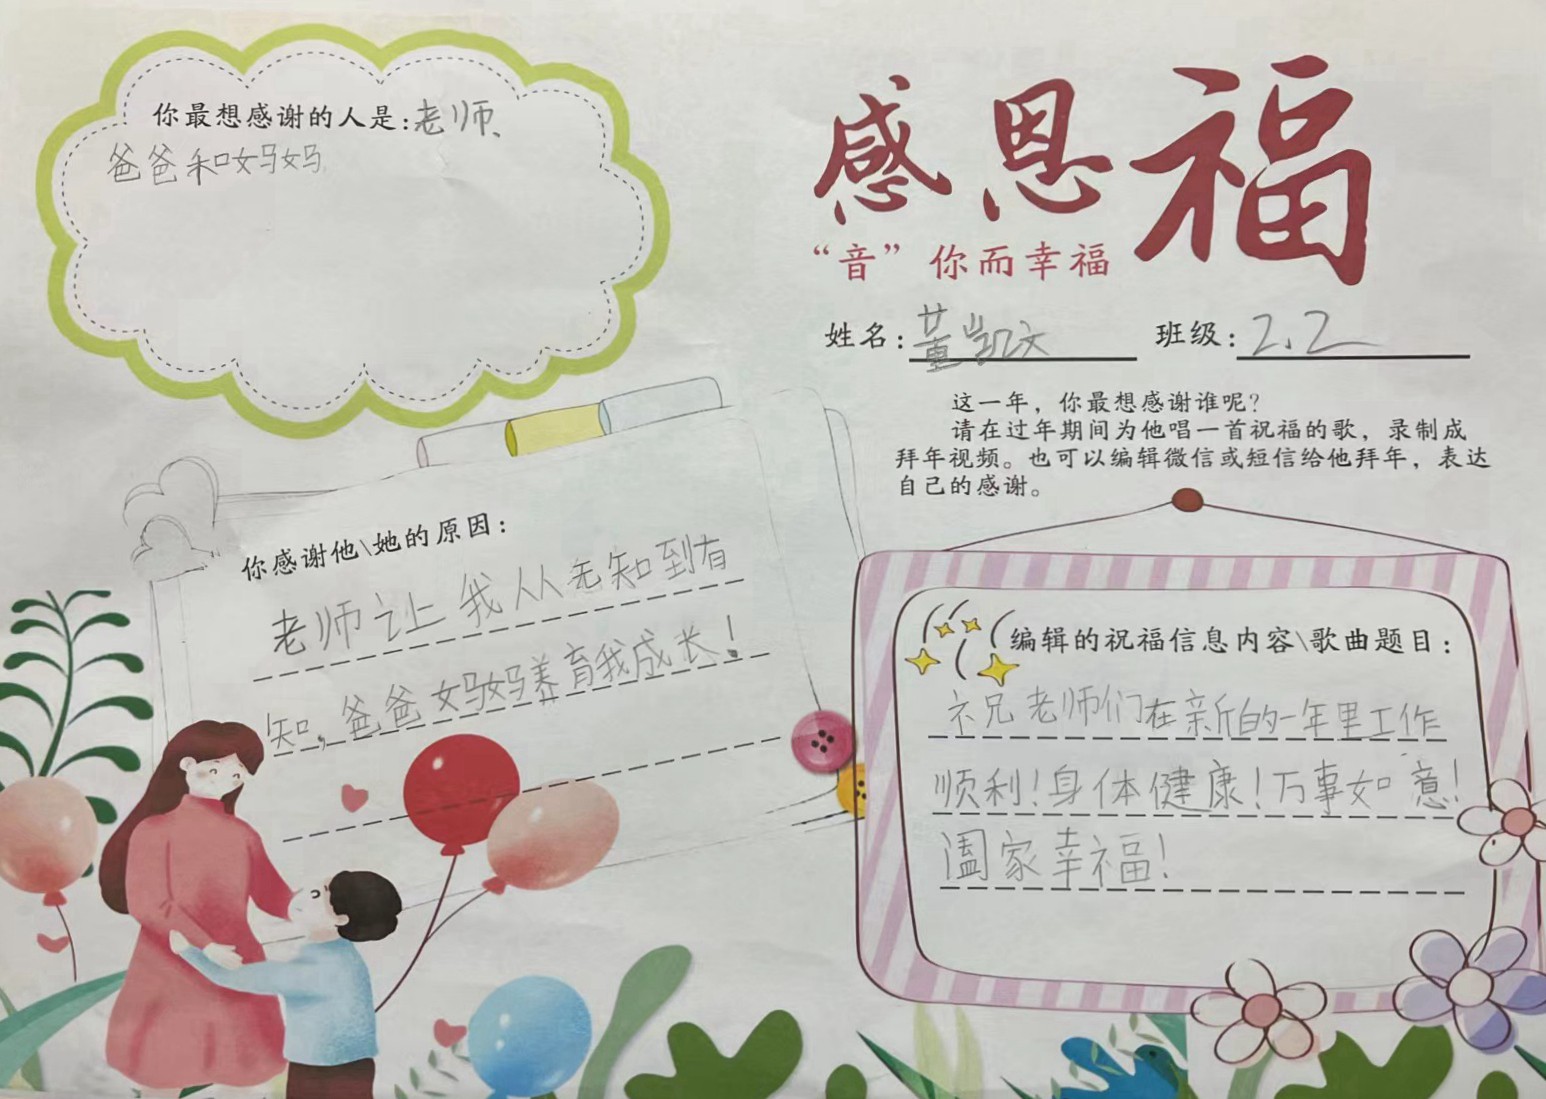 你最想感谢的人是:老师、
爸爸和妈妈
感恩福
“音”你而幸福
姓名:董凯文 班级:2.2
这一年，你最想感谢谁呢?
请在过年期间为他唱一首祝福的歌，录制成
拜年视频。也可以编辑微信或短信给他拜年，表达
自己的感谢。
你感谢他\她的原因:
老师让我从无知到有
知，爸爸妈妈养育我成长!
编辑的祝福信息内容\歌曲题目:
祝老师们在新的一年里工作
顺利!身体健康!万事如意!
阖家幸福!